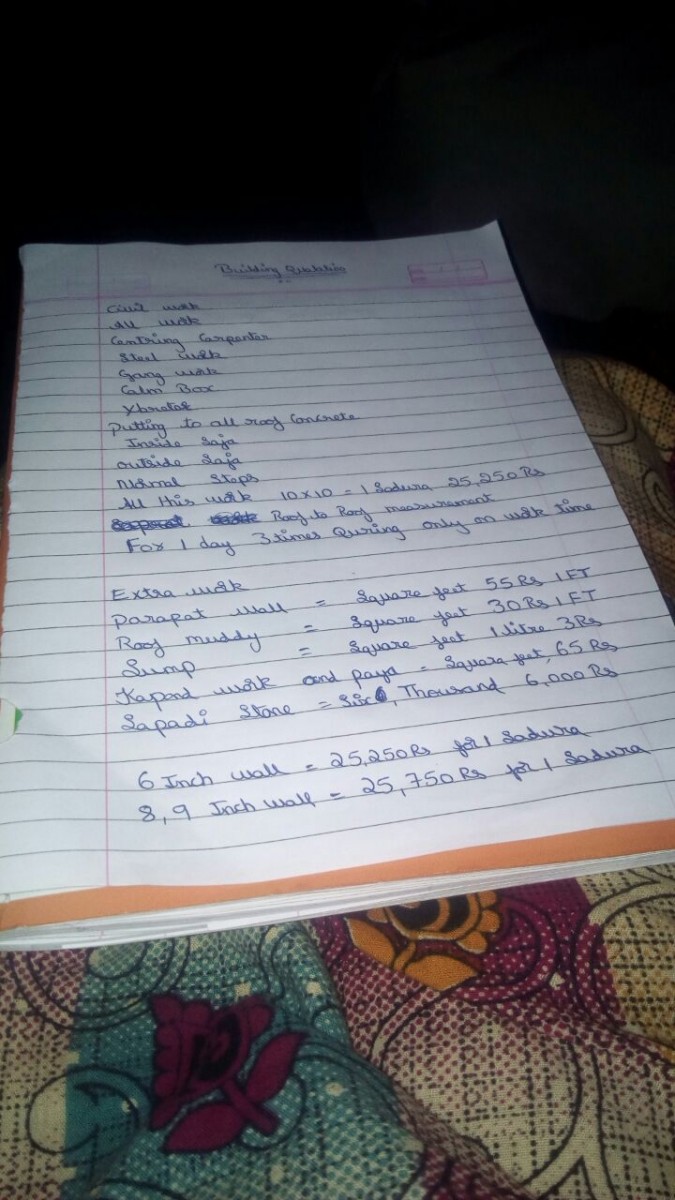 Building Quotation
Civil work
All work
Centring Carpenter
Steel work
Gang work
Calm Box
Ybrator
Putting to all roof Concrete
Inside Saja
outside Saja
Normal Steps
All this work 10x10 = 1 Sadura 25,250 Rs
Roof to Roof measurement
For 1 day 3 times Quring only on work time
Extra work
Parapat wall = Square feet 55 Rs 1 FT
Roof muddy = Square feet 30 Rs 1 FT
Sump = Square feet 1 litre 3 Rs
Kapand work and paya = Square feet, 65 Rs
Sapadi Stone = Six, Thousand 6,000 Rs
6 Inch wall = 25,250 Rs for 1 Sadura
8,9 Inch wall = 25,750 Rs for 1 Sadura